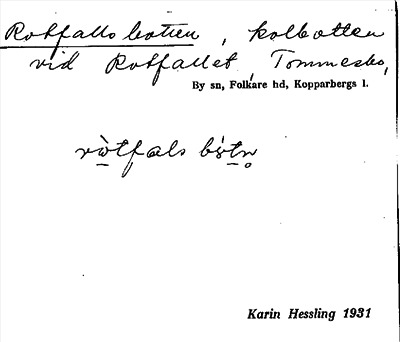 Rotfallsbotten, kolbotten
vid Rotfallet, Tommesbo,
By sn, Folkare hd, Kopparbergs l.
ròtfals bòtn̥
Karin Hessling 1931